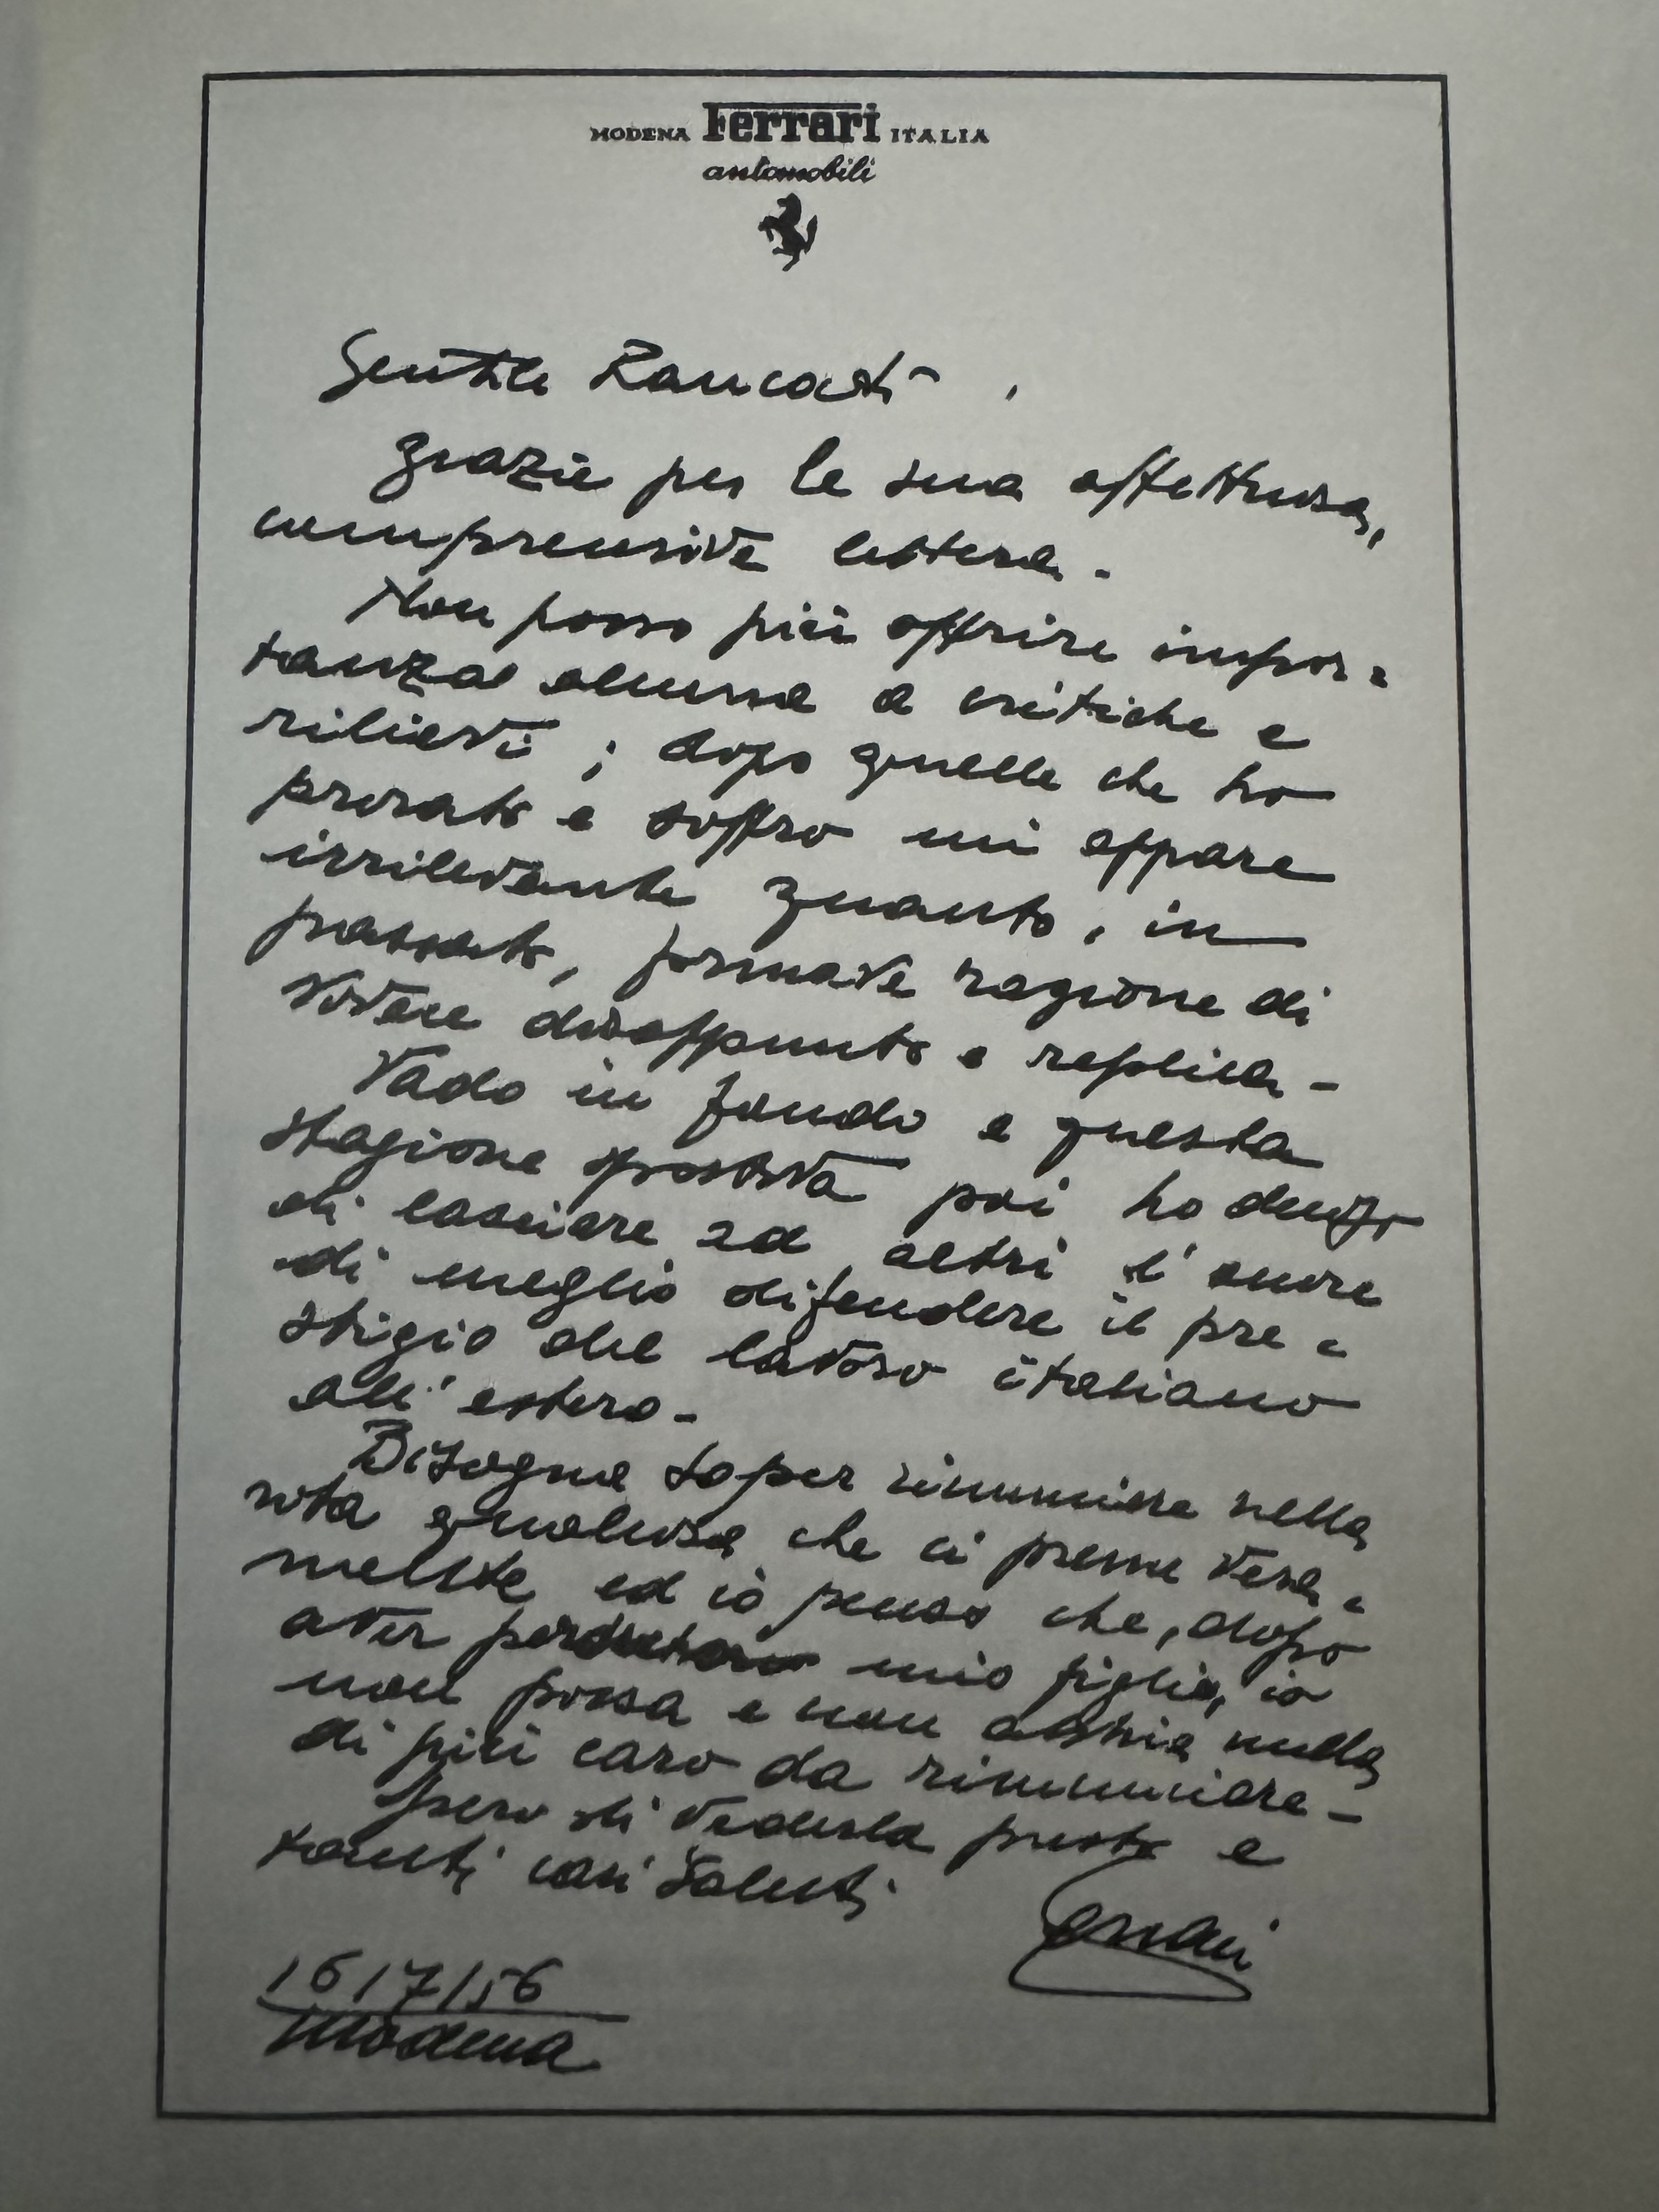 MODENA Ferrari ITALIA
automobili
Gentile Rancati,
grazie per la sua affettuosa,
comprensiva lettera.
Non posso più offrire impor=
tanza alcuna a critiche e
rilievi; dopo quello che ho
provato e soffro mi appare
irrilevante quanto, in
passato, formava ragione di
vivace disappunto e replica -
Vado in fondo a questa
stagione sportiva poi ho deciso
di lasciare ad altri l'onore
di meglio difendere il pre=
stigio del lavoro italiano
all'estero -
Bisogna saper rinunciare nella
vita a qualcosa che ci preme vera=
mente ed io penso che, dopo
aver perduto mio figlio, io
non possa e non abbia nulla
di più caro da rinunciare -
Spero di vederla presto e
tanti cari saluti
Ferrari
16/7/56
Modena